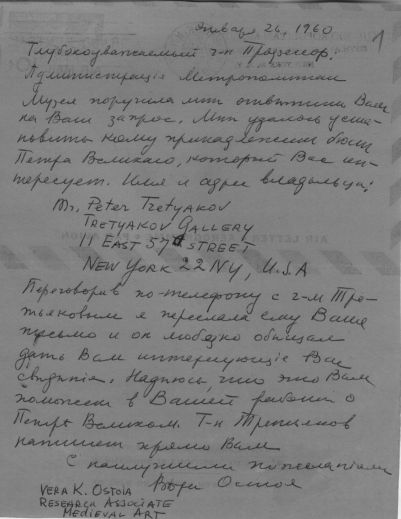 января 26, 1960
1
Глубокоуважаемый г-н Профессор!
Администрація Метрополитан
Музея поручила мнѣ отвѣтить Вамъ
на Ваш запрос. Мнѣ удалось уста-
новить кому принадлежит бюст
Петра Великаго, который Вас ин-
тересует. Имя и адрес владѣльца:
Mr. Peter Tretyakov
Tretyakov Gallery
11 East 57 Street
New York 22 NY, U.S.A
Переговорив по телефону с г-м Тре-
тьяковым я переслала ему Ваше
письмо и он любезно обѣщал
дать Вам интересующіе Вас
свѣдѣнія. Надѣюсь, что это Вам
поможет в Вашей работѣ о
Петрѣ Великом. Г-н Третьяков
напишет прямо Вам
С наилучшими пожеланіями
Вѣра Остоя
Vera K. Ostoia
Research Associate
Medieval Art